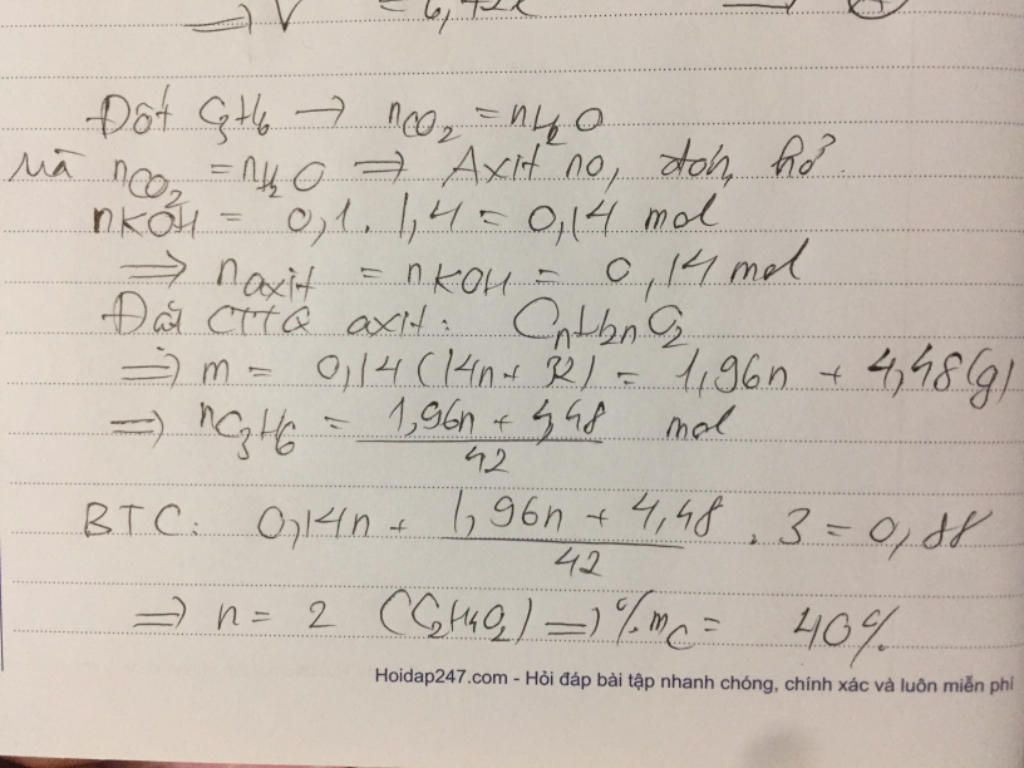 ⇒ V = 6,72l ⇒ A
Đốt C3H6 → nCO2 = nH2O
Mà nCO2 = nH2O ⇒ Axit no, đơn, hở.
nKOH = 0,1 . 1,4 = 0,14 mol
⇒ naxit = nKOH = 0,14 mol
Đặt CTTQ axit: CnH2nO2
⇒ m = 0,14(14n + 32) = 1,96n + 4,48(g)
⇒ nC3H6 = (1,96n + 4,48)/42 mol
BTC: 0,14n + (1,96n + 4,48)/42 . 3 = 0,88
⇒ n = 2 (C2H4O2) ⇒ %mC = 40%
Hoidap247.com - Hỏi đáp bài tập nhanh chóng, chính xác và luôn miễn phí